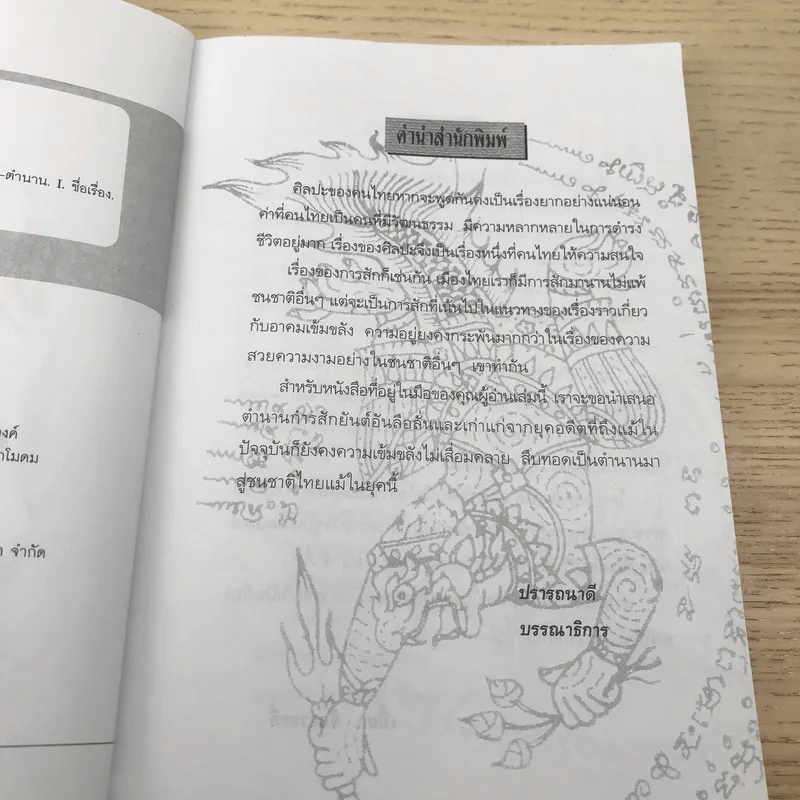 -ตำนาน. I. ชื่อเรื่อง.
จำกัด
คำนำสำนักพิมพ์
ศิลปะของคนไทยหากจะพูดกันคงเป็นเรื่องยากอย่างแน่นอน
ค่าที่คนไทยเป็นคนที่มีวัฒนธรรม มีความหลากหลายในการดำรง
ชีวิตอยู่มาก เรื่องของศิลปะจึงเป็นเรื่องหนึ่งที่คนไทยให้ความสนใจ
เรื่องของการสักก็เช่นกัน เมืองไทยเราก็มีการสักมานานไม่แพ้
ชนชาติอื่นๆ แต่จะเป็นการสักที่เน้นไปในแนวทางของเรื่องราวเกี่ยว
กับอาคมเข้มขลัง ความอยู่ยงคงกระพันมากกว่าในเรื่องของความ
สวยความงามอย่างในชนชาติอื่นๆ เขาทำกัน
สำหรับหนังสือที่อยู่ในมือของคุณผู้อ่านเล่มนี้ เราจะขอนำเสนอ
ตำนานการสักยันต์อันลือลั่นและเก่าแก่จากยุคอดีตที่ถึงแม้ใน
ปัจจุบันก็ยังคงความเข้มขลังไม่เสื่อมคลาย สืบทอดเป็นตำนานมา
สู่ชนชาติไทยแม้ในยุคนี้
ปรารถนาดี
บรรณาธิการ